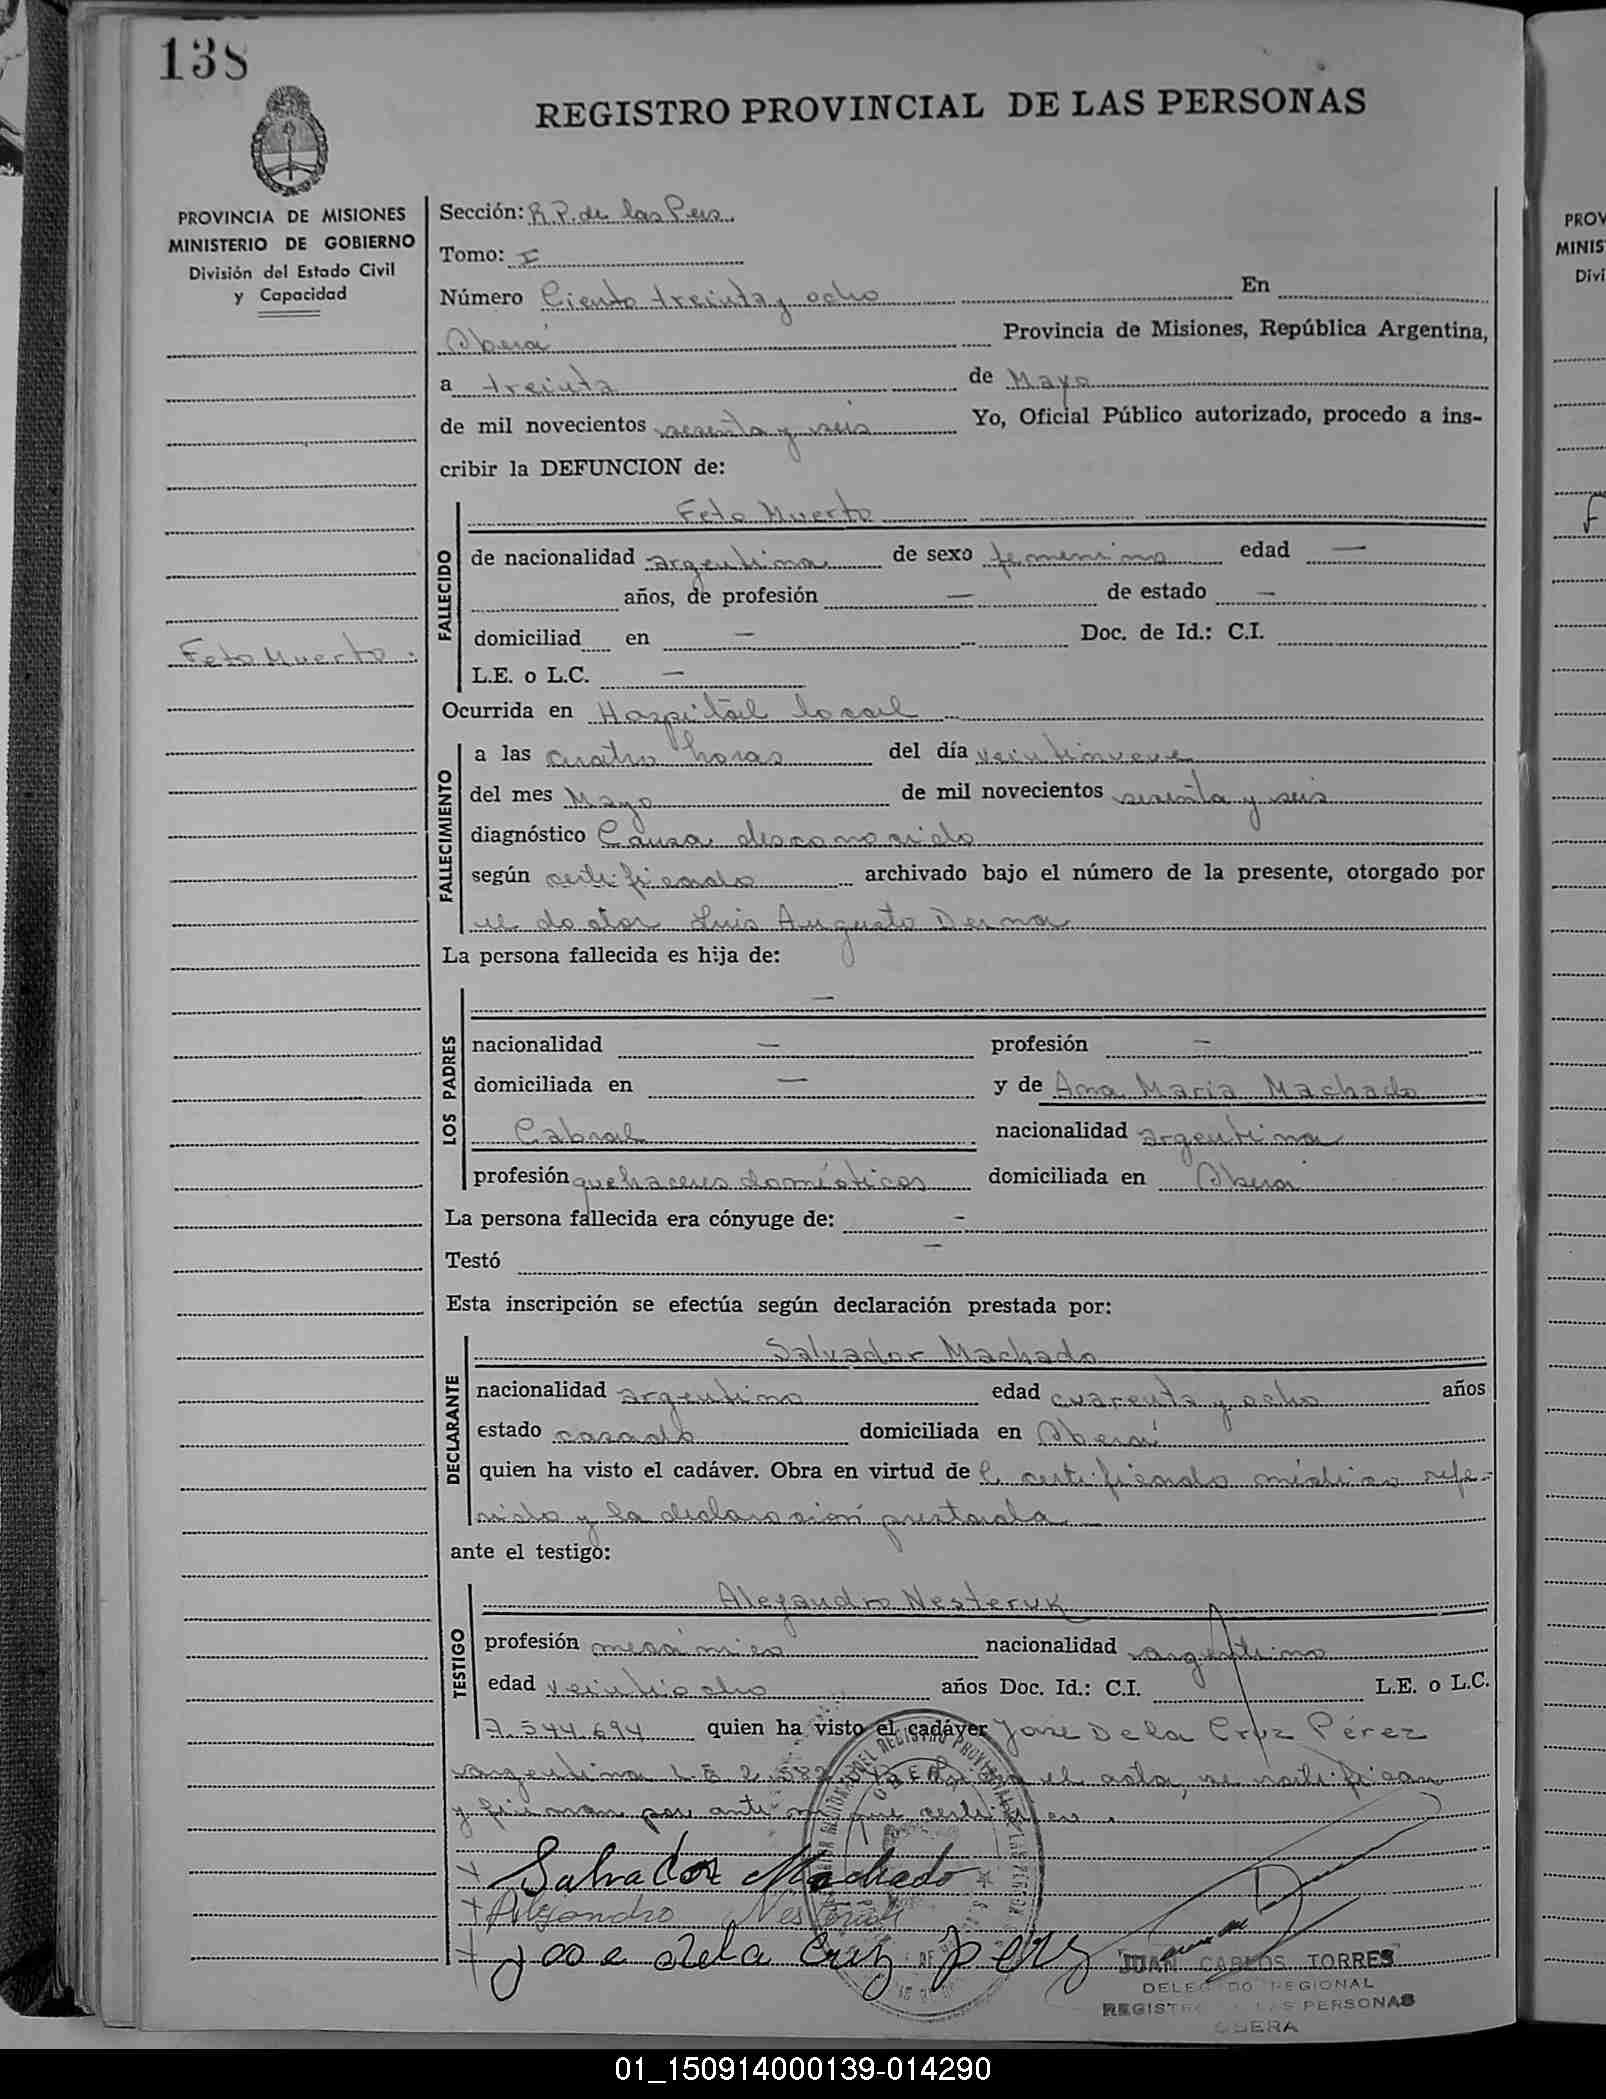 138
REGISTRO PROVINCIAL DE LAS PERSONAS
PROVINCIA DE MISIONES
MINISTERIO DE GOBIERNO
División del Estado Civil
y Capacidad
Feto Muerto.
Sección: R.P. de las Pers.
Tomo: I
Número Ciento treinta y ocho En
Oberá Provincia de Misiones, República Argentina,
a treinta de Mayo
de mil novecientos sesenta y seis Yo, Oficial Público autorizado, procedo a ins-
cribir la DEFUNCION de:
FALLECIDO
Feto Muerto
de nacionalidad argentina de sexo femenino edad —
años, de profesión — de estado —
domiciliad en — Doc. de Id.: C.I.
L.E. o L.C. —
Ocurrida en Hospital local
FALLECIMIENTO
a las cuatro horas del día veintinueve
del mes Mayo de mil novecientos sesenta y seis
diagnóstico Causa desconocida
según certificado archivado bajo el número de la presente, otorgado por
el doctor Luis Augusto Derna
La persona fallecida es hija de:
LOS PADRES
—
nacionalidad — profesión —
domiciliada en — y de Ana Maria Machado
Cabral nacionalidad argentina
profesión quehaceres domésticos domiciliada en Oberá
La persona fallecida era cónyuge de: -
Testó —
Esta inscripción se efectúa según declaración prestada por:
DECLARANTE
Salvador Machado
nacionalidad argentino edad cuarenta y ocho años
estado casado domiciliada en Oberá
quien ha visto el cadáver. Obra en virtud de el certificado médico refe-
rido y la declaración prestada
ante el testigo:
TESTIGO
Alejandro Nesteruk
profesión mecánico nacionalidad argentino
edad veintiocho años Doc. Id.: C.I. L.E. o L.C.
7.544.694 quien ha visto el cadáver Jose De la Cruz Pérez
argentino L.E 2.582 el acta, se ratifican
y firman por ante mi que certifico.
Salvador Machado
Alejandro Nesteruk
Jose de la Cruz Perez
JUAN CARLOS TORRES
DELEGADO REGIONAL
REGISTRO LAS PERSONAS
OBERA
PROV
MINIS
Divi
F
01_150914000139-014290